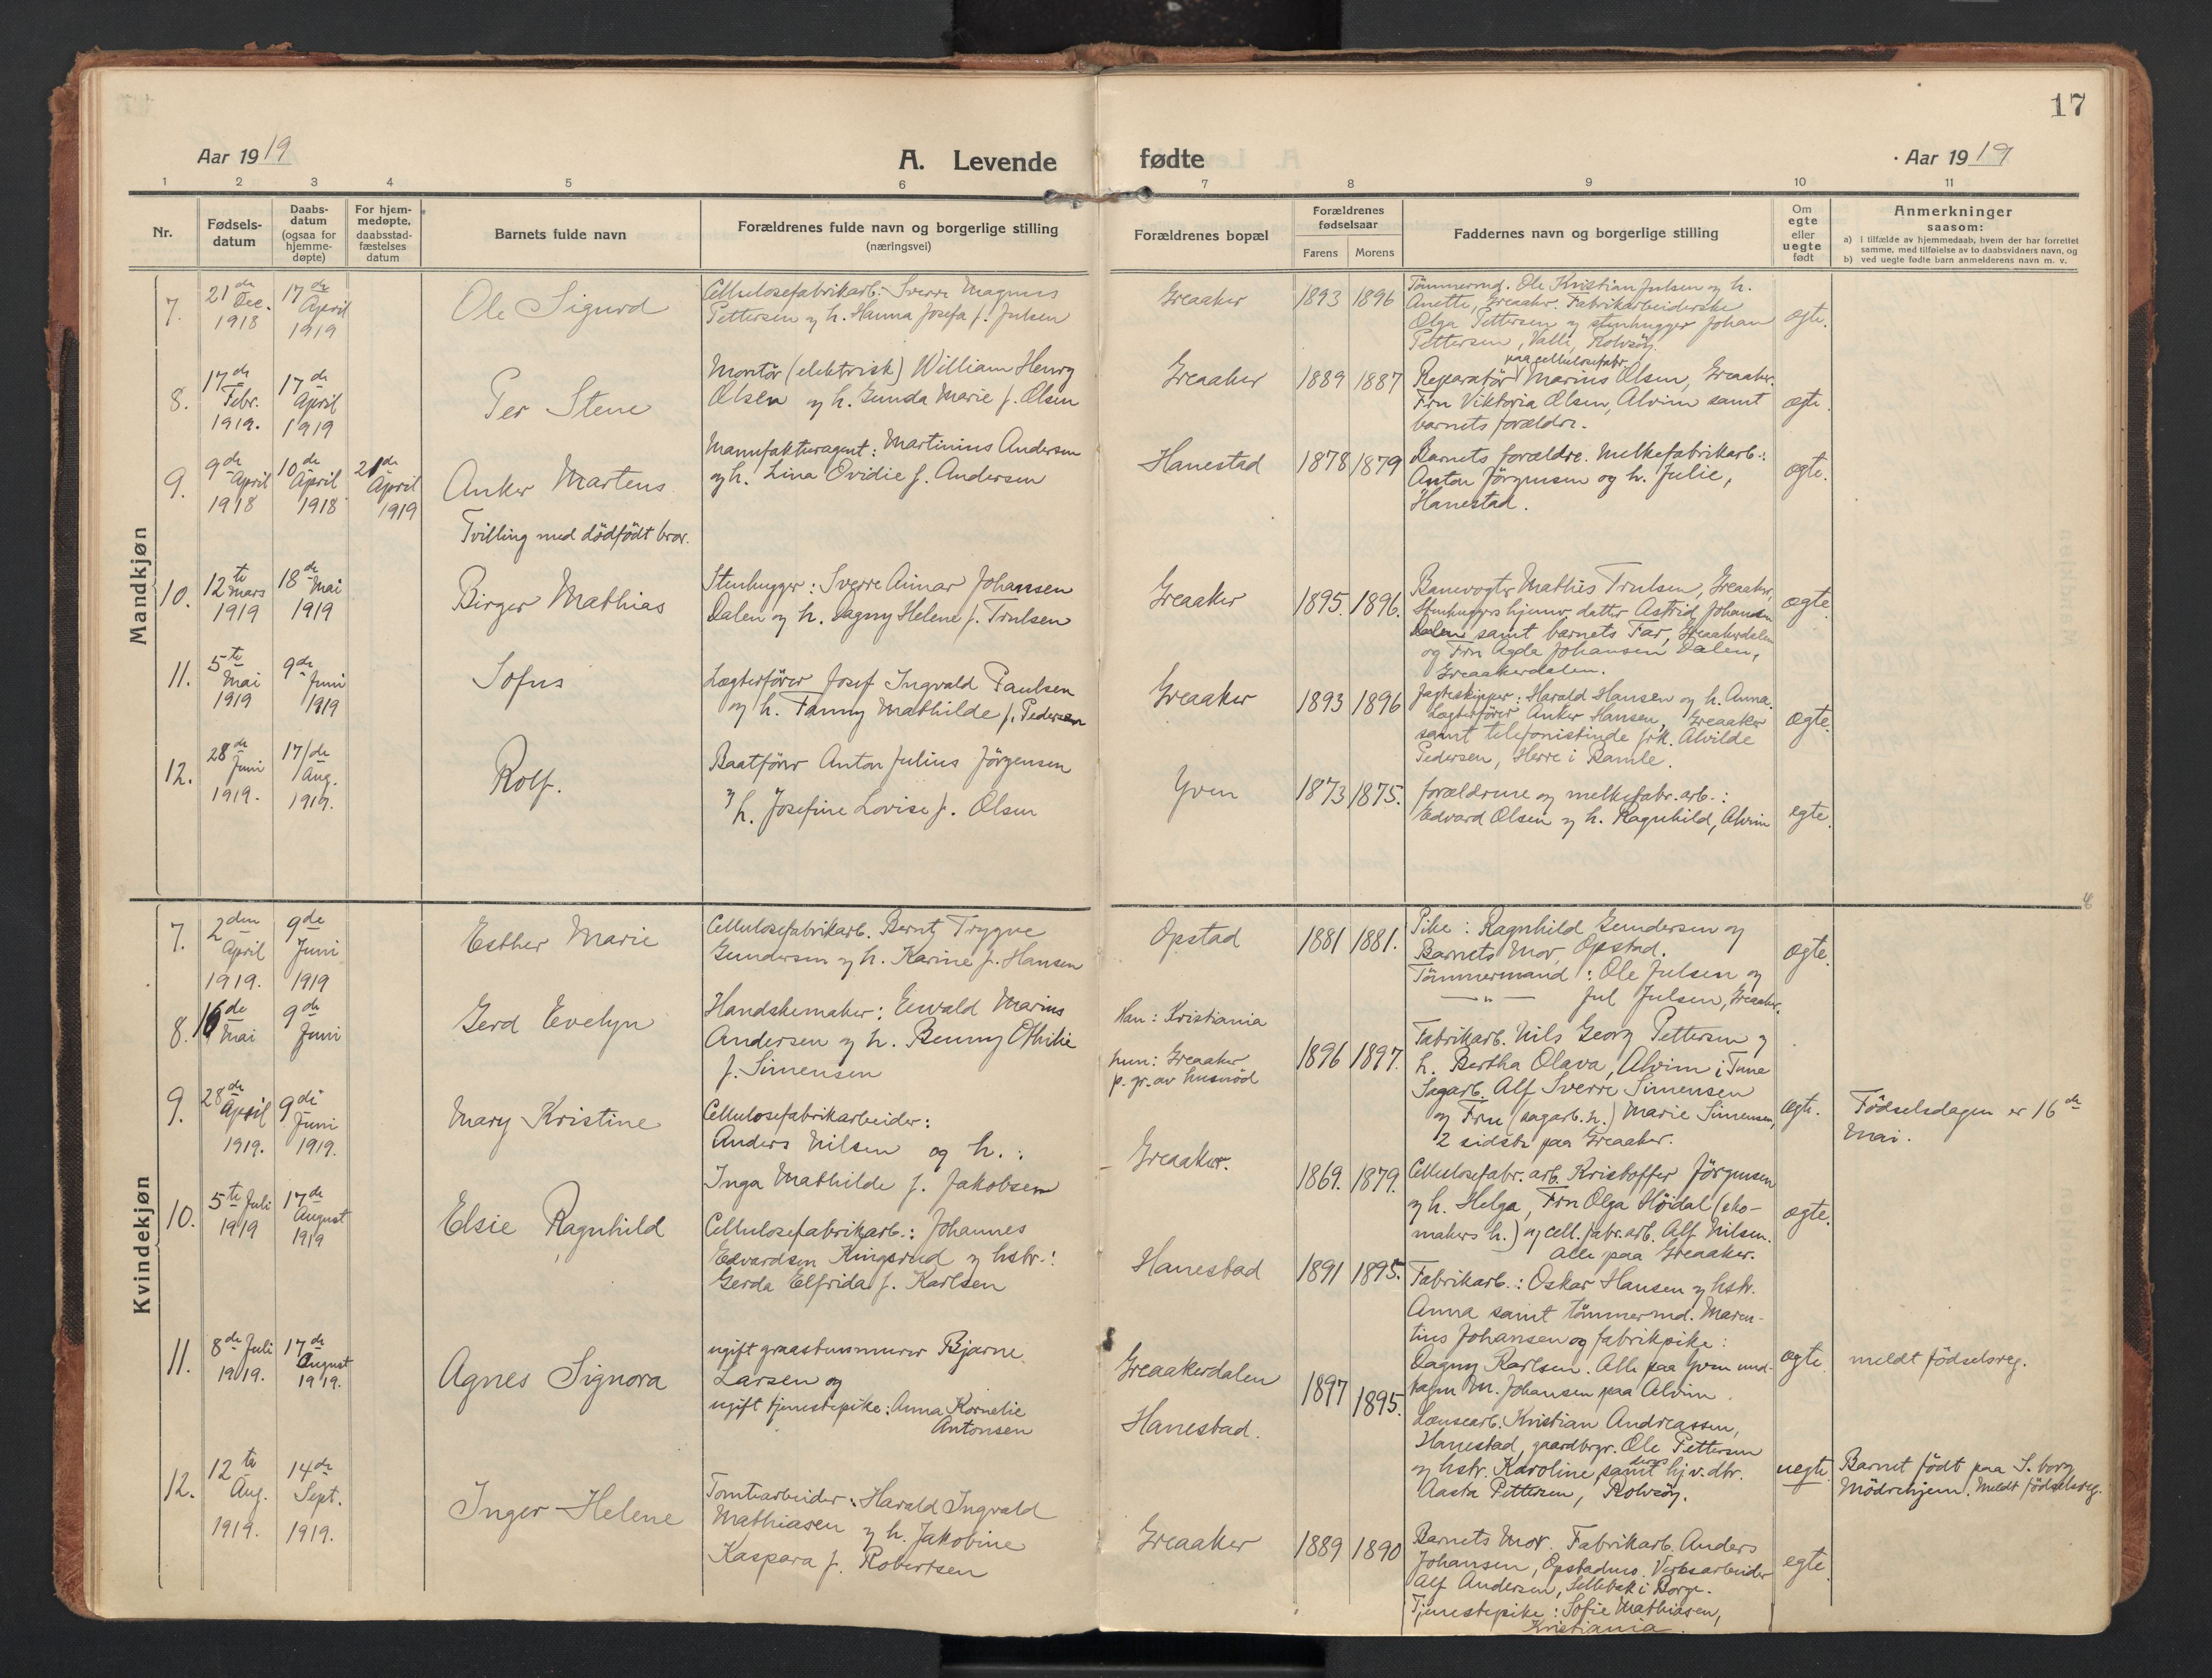 17
Aar 1919
A. Levende fødte
Aar 1919
1 2 3 4 5 6 7 8 9 10 11
Nr.
Fødsels-
datum
Daabs-
datum
(ogsaa for
hjemme-
døpte)
For hjem-
medøpte,
daabsstad-
fæstelses
datum
Barnets fulde navn
Forældrenes fulde navn og borgerlige stilling
(næringsvei)
Forældrenes bopæl
Forældrenes
fødselsaar
Farens Morens
Faddernes navn og borgerlige stilling
Om
egte
eller
uegte
født
Anmerkninger
saasom:
a) i tilfælde av hjemmedaab, hvem der har forrettet
samme, med tilføielse av to daabsvidners navn, og
b) ved uegte fødte barn anmelderens navn m. v.
Mandkjøn
7.
21de
Dec.
1918
17de
April
1919
Ole Sigurd
Cellulosefabrikarb. Sverre Magnus
Pettersen og h. Hanna Josefa f. Julsen
Greaaker
1893 1896
Tömmermd. Ole Kristian Julsen og h.
Anette, Greaaker. Fabrikarbeiderske
Olga Pettersen og stenhugger Johan
Pettersen, Valle, Rolvsöy.
egte.
8.
17de
Febr.
1919.
17de
April
1919
Per Stene
Montör (elektrisk) William Henry
Olsen og h. Gunda Marie f. Olsen
Greaaker
1889 1887
paa cellulosefabr.
Reparatör Marius Olsen, Greaaker.
Fru Viktoria Olsen, Alvim samt
barnets forældre.
egte.
9.
9de
April
1918
10de
April
1918
21de
April
1919
Anker Martens
Tvilling med dödfödt bror.
Manufakturagent: Martinius Andersen
og h. Lina Ovidie f. Andersen
Hanestad
1878 1879
Barnets forældre. Melkefabrikarb.:
Anton Jörgensen og h. Julie,
Hanestad.
egte.
10.
12te
Mars
1919
18de
Mai
1919
Birger Mathias
Stenhugger: Sverre Einar Johansen
Dalen og h. Dagny Helene f. Trulsen
Greaaker
1895. 1896.
Banevogter Mathis Trulsen, Greaaker,
Stenhuggers hjemv. datter Astrid Johansen
Dalen samt barnets Far, Greaakerdalen
og Fru Agda Johansen Dalen,
Greaakerdalen.
egte
11.
5te
Mai
1919
9de
Juni
1919
Sofus
Lægterförer Josef Ingvald Paulsen
og h. Fanny Mathilde f. Pedersen
Greaaker
1893 1896
Jagteskipper: Harald Hansen og h. Anna.
Lægterförer Anker Hansen, Greaaker
samt telefonistinde frk. Alvilde
Pedersen, Herre i Bamle.
egte.
12.
28de
Juni
1919.
17de
Aug.
1919.
Rolf.
Baatförer Anton Julius Jörgensen
og h. Josefine Lovise f. Olsen
Yven
1873 1875.
forældrene og melkefabr.arb.:
Edvard Olsen og h. Ragnhild, Alvim
egte.
Kvindekjøn
7.
2den
April
1919.
9de
Juni
1919
Esther Marie
Cellulosefabrikarb. Bernt Trygve
Gundersen og h. Karine f. Hansen
Opstad
1881 1881.
Pike: Ragnhild Gundersen og
Barnets Mor, Opstad.
Tömmermand: Ole Julsen og
— " — Jul Julsen, Greaaker.
egte.
8.
16de
Mai
9de
Juni
Gerd Evelyn
Handskemaker: Ewald Marius
Andersen og h. Benny Othilie
f. Simensen
Han: Kristiania
hun: Greaaker
p. gr. av husnöd
1896 1897.
Fabrikarb. Nils Georg Pettersen og
h. Bertha Olava, Alvim i Tune
Sagarb. Alf Sverre Simensen
og Fru (sagarb. h.) Marie Simensen,
2 sidste paa Greaaker.
egte.
Födselsdagen er 16de
Mai.
9.
28de
April
1919.
9de
Juni
1919.
Mary Kristine
Cellulosefabrikarbeider:
Anders Nilsen og h.:
Inga Mathilde f. Jakobsen
Greaaker.
1869. 1879.
Cellulosefabr. arb. Kristoffer Jörgensen
og h. Helga, Fru Olga Höidal (sko-
makers h.) og cell.fabr.arb. Alf Nilsen.
Alle paa Greaaker.
egte.
10.
5te Juli
1919
17de
August
1919
Elsie Ragnhild
Cellulosefabrikarb.: Johannes
Edvardsen Kingsrud og hstr.:
Gerda Elfrida f. Karlsen
Hanestad
1891 1895.
Fabrikarb.: Oskar Hansen og hstr.
Anna samt tömmermd. Maren-
tius Johansen og fabrikpike:
Dagny Karlsen. Alle paa Yven und-
tagen M. Johansen paa Alvim.
egte
meldt födselsreg.
11.
8de Juli
1919.
17de
August
1919.
Agnes Signora
ugift graastensmurer Bjarne
Larsen og
ugift tjenestepike: Anna Kornelie
Antonsen
Greaakerdalen
Hanestad.
1897 1895.
Lensearb. Kristian Andreassen,
Hanestad, gaardbrgr. Ole Pettersen
og hstr. Karoline samt deres hjv. dtr.
Aasta Pettersen, Rolvsöy.
uegte.
Barnet födt paa S.borg
Mödrehjem. Meldt födselsreg.
12.
12te
Aug.
1919.
14de
Sept.
1919.
Inger Helene
Tomtearbeider: Harald Ingvald
Mathiasen og h. Jakobine
Kaspara f. Robertsen
Greaaker
1889 1890
Barnets Mor. Fabrikarb. Anders
Johansen, Opstadmo. Verksarbeider
Alf Andersen, Sellebak i Borge.
Tjenestepike: Sofie Mathiasen,
Kristiania.
egte.